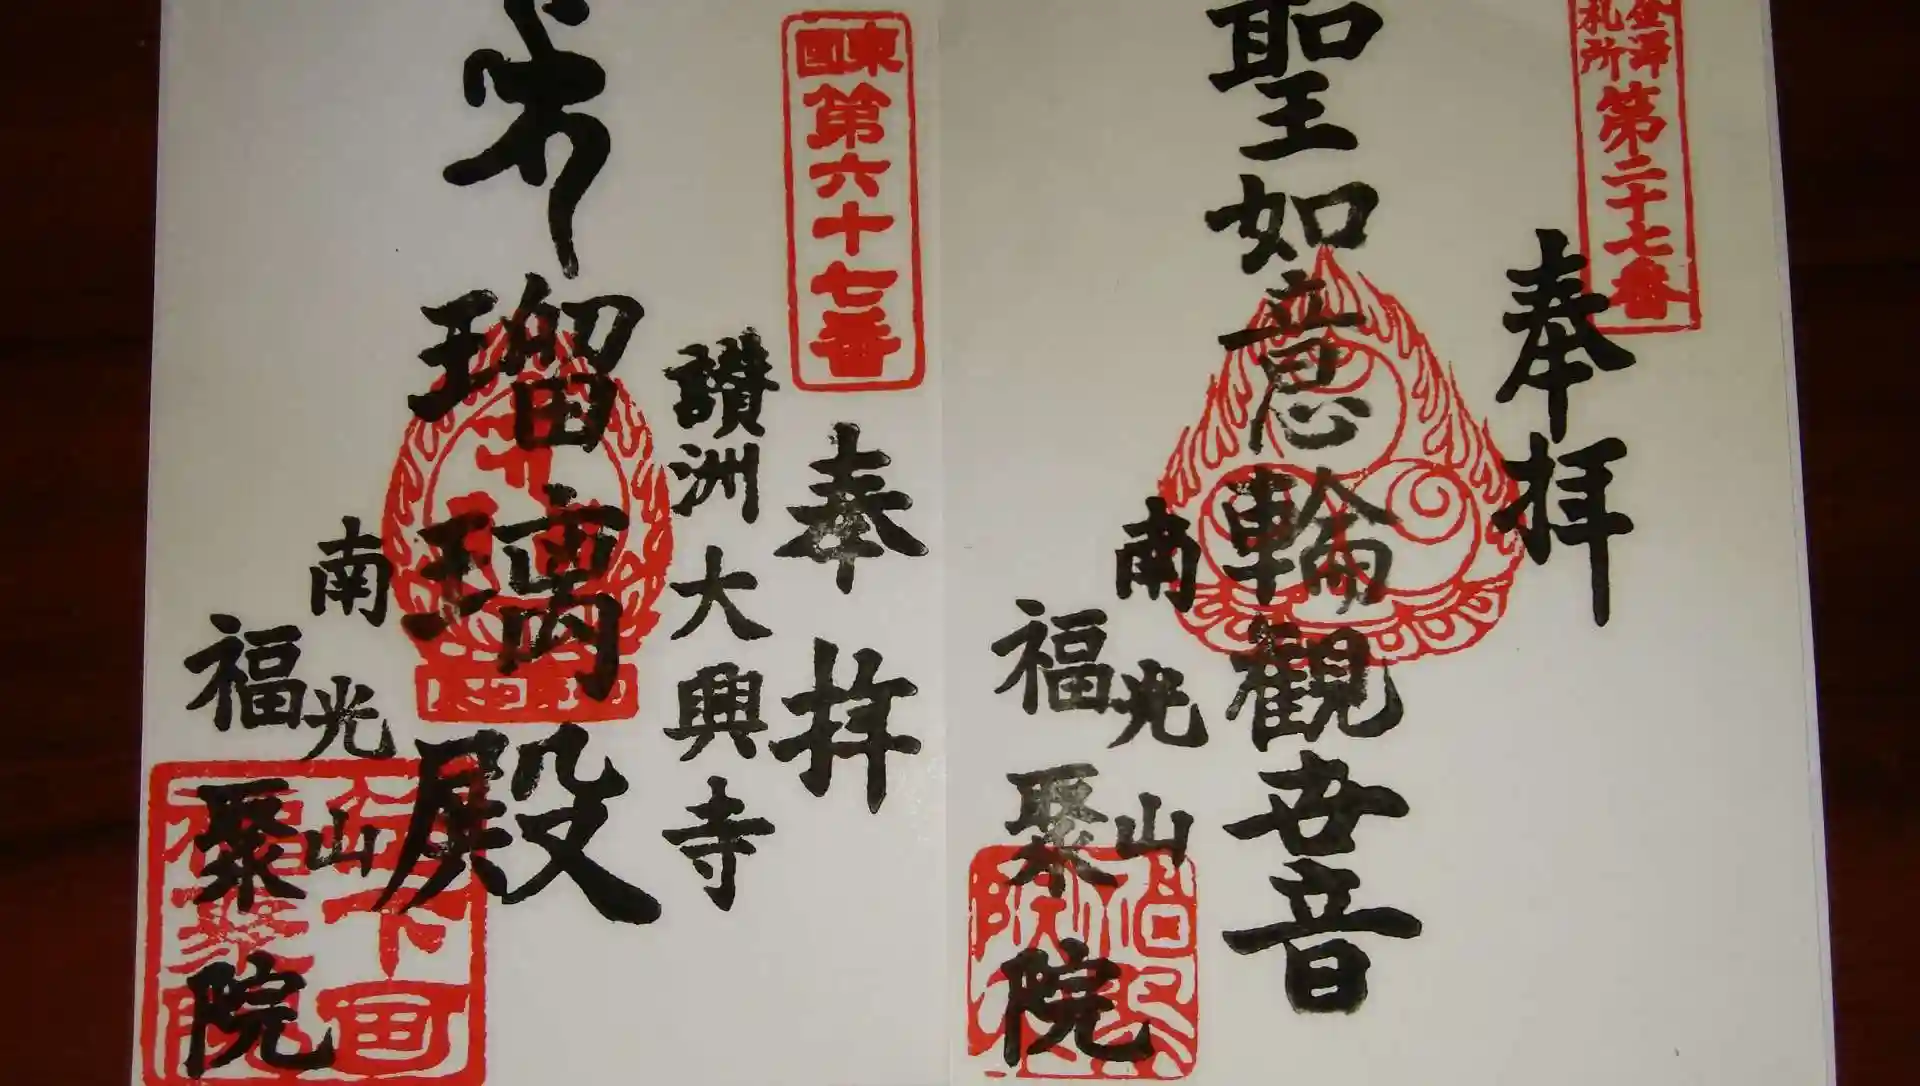 金澤
札所
第二十七番
奉拝
聖如意輪観世音
南光山
福聚院
東國
第六十七番
奉拝
讃洲大興寺
瑠璃殿
南光山
福聚院